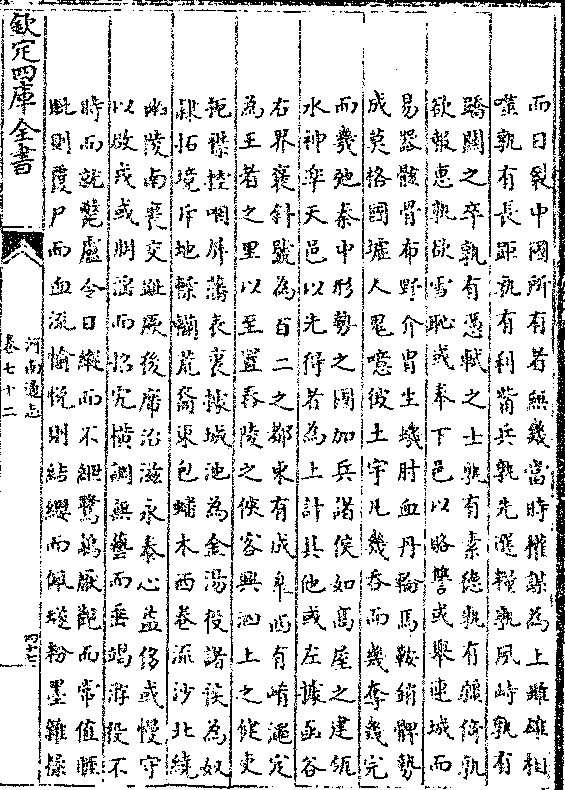 而日裂中國所有者無幾當時權謀為上雌雄相
噬孰有長距孰有利觜兵孰先選糧孰夙峙孰有
驕關之卒孰有憑軾之士孰有素德孰有強倚孰
欲報惠孰欲雪恥或奉下邑以賂讐或舉連城而
易器骸骨布野介冑生蟣肘血丹輪馬鞍銷髀勢
成莫格國墟人鬼噫彼土宇凡幾吞而幾奪幾完
而幾弛秦中形勢之國加兵諸侯如高屋之建瓴
水神臯天邑以先得者為上計其他或左據函谷
右界褒斜號為百二之都東有成臯西有崤澠定
為王者之里以至置春陵之俠客興泗上之健吏
扼襟控咽屏藩表裏據城池為金湯役諸侯為奴
隸拓境斥地轢躪荒裔東包蟠木西卷流沙北繞
幽陵南裹交趾厥後席治滋永泰心益侈或慢守
以啟戎或朋滛而招宄横調無藝而垂竭游役不
時而就斃慮令日縱而不綱驚鷁厭觀而常值睚
眦則覆尸而血流愉悅則結纓而佩璲粉墨雜糅
欽定四庫全書
河南通志
卷七十二
四十七